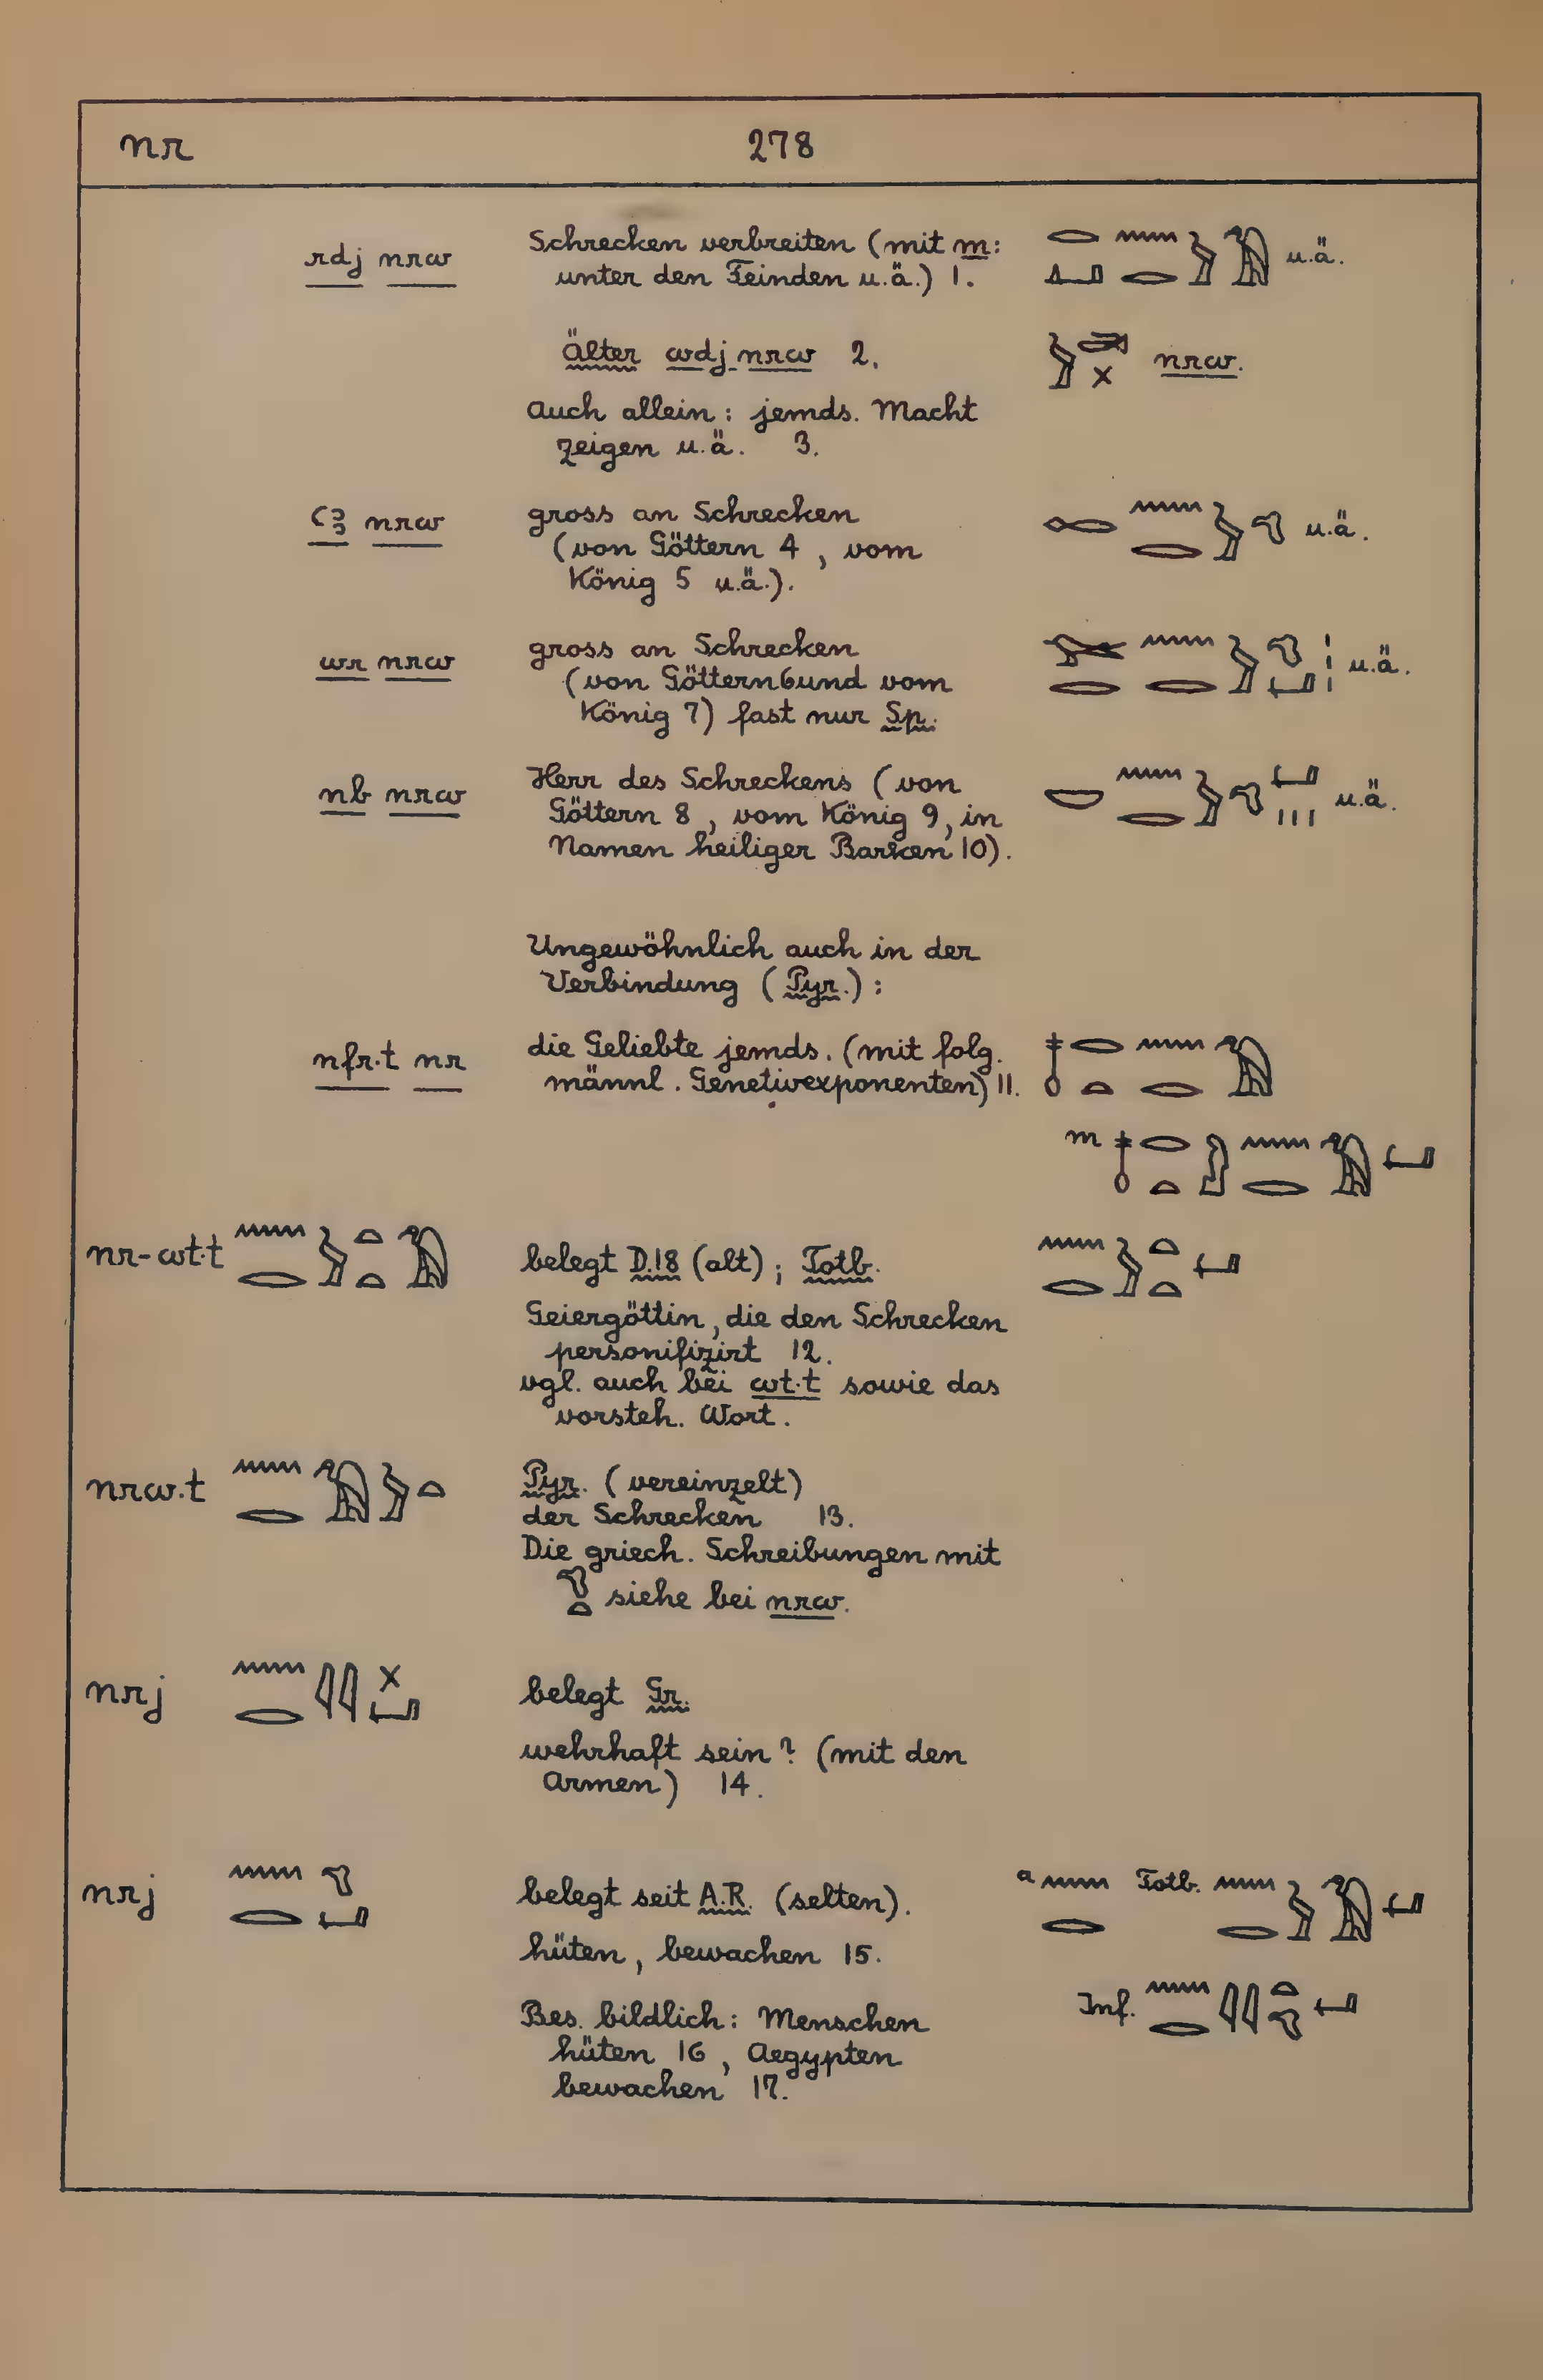 nr 278
rdj nrw Schrecken verbreiten (mit m: u.ä.
unter den Feinden u.ä.) 1.
Älter wdj nrw 2. nrw.
Auch allein: jemds. Macht
zeigen u.ä. 3.
ꜥꜣ nrw gross an Schrecken u.ä.
(von Göttern 4, vom
König 5 u.ä.).
wr nrw gross an Schrecken u.ä.
(von Göttern 6 und vom
König 7) fast nur Sp.
nb nrw Herr des Schreckens (von u.ä.
Göttern 8, vom König 9, in
Namen heiliger Barken 10).
Ungewöhnlich auch in der
Verbindung (Pyr.):
nfr.t nr die Geliebte jemds. (mit folg.
männl. Genetivexponenten) 11.
m
nr-wt.t belegt D.18 (alt); Totb.
Geiergöttin, die den Schrecken
personifizirt 12.
vgl. auch bei wt.t sowie das
vorsteh. Wort.
nrw.t Pyr. (vereinzelt)
der Schrecken 13.
Die griech. Schreibungen mit
siehe bei nrw.
nrj belegt Gr.
wehrhaft sein? (mit den
Armen) 14.
nrj belegt seit A.R. (selten). a Totb.
hüten, bewachen 15.
Inf.
Bes. bildlich: Menschen
hüten 16, Aegypten
bewachen 17.